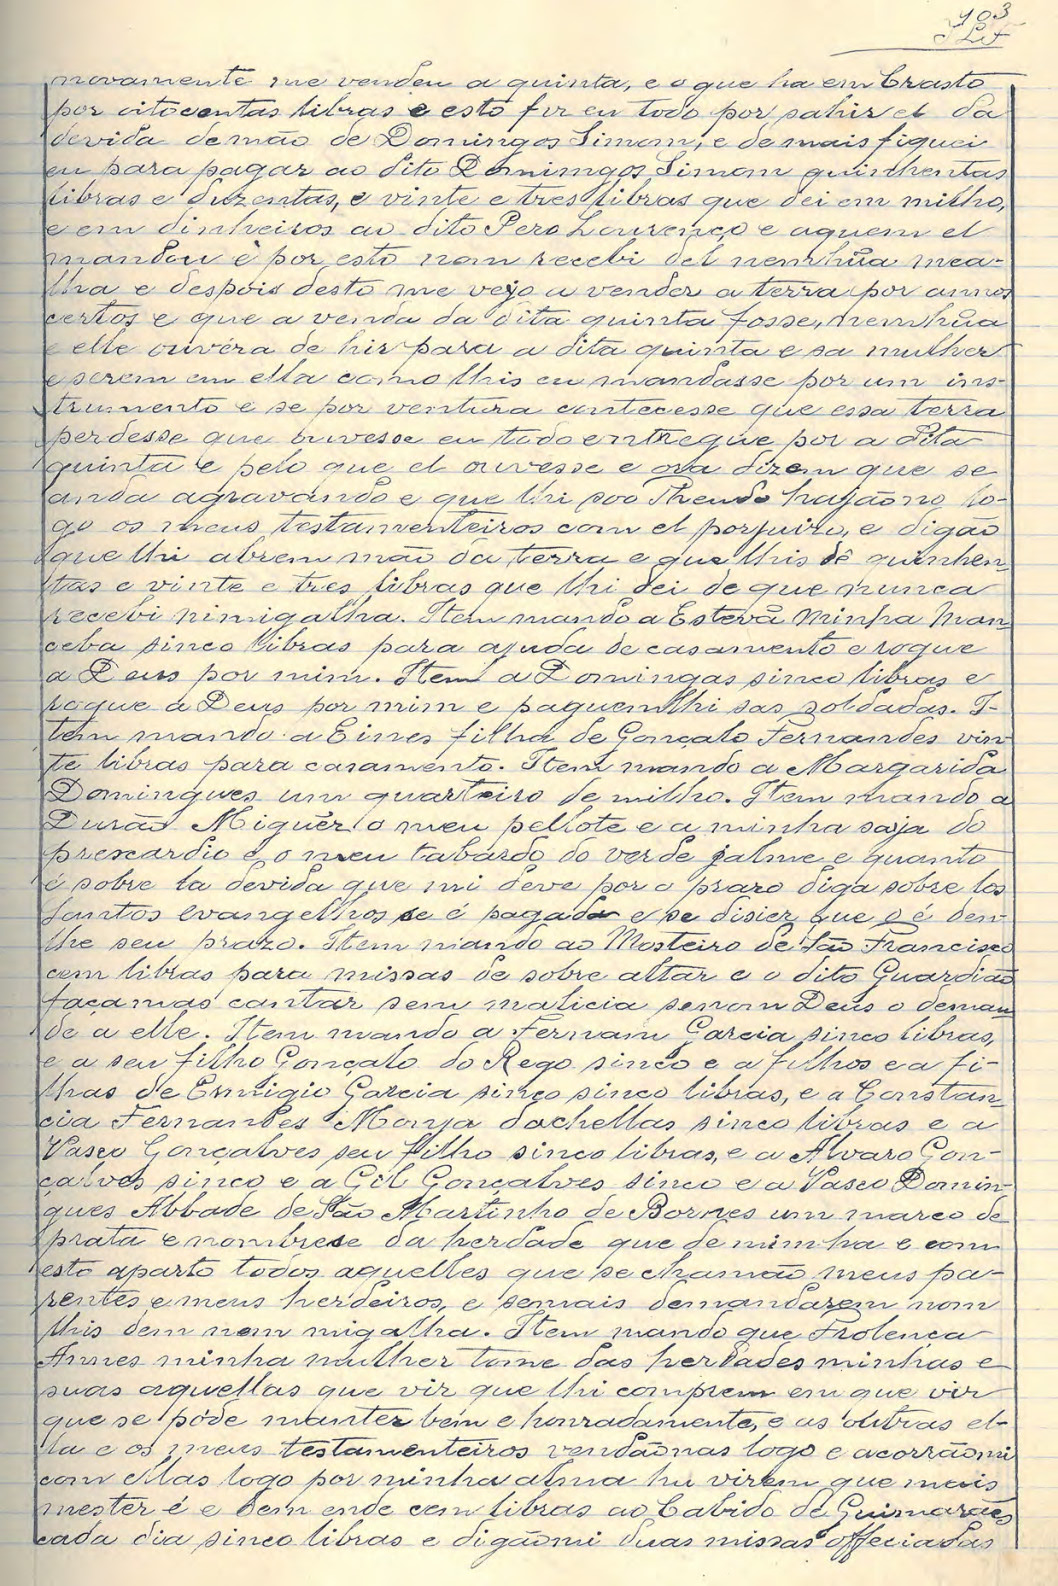 103
novamente me vendeu a quinta, e o que ha em Crasto
por oitocentas libras e esto fiz eu todo por sahir el da
devida de mão de Domingos Simom, e demais fiquei
eu para pagar ao dito Domingos Simom quinhentas
libras e duzentas, e vinte e tres libras que dei em milho,
e em dinheiros ao dito Pero Lourenço e aquem el
mandou e por esto nom recebi del nemhũa mea-
lha e despois desto me vejo a vender a terra por annos
certos e que a venda da dita quinta fosse, nemhũa
e elle ouvéra de hir para a dita quinta e sa mulher
e serem em ella como lhis eu mandasse por um ins-
trumento e se por ventura contecesse que essa terra
perdesse que ouvesse eu todo entregue por a dita
quinta e pelo que el ouvesse e ora dizem que se
anda agravando e que lhi soo theudo hajãono lo-
go os meus testamenteiros com el por juizo, e digão
que lhi abrem mão da terra e que lhis dê quinhen-
tas e vinte e tres libras que lhi dei de que nunca
recebi nimigalha. Item mando a Estevã minha Man-
ceba sinco libras para ajuda de casamento e rogue
a Deus por mim. Item a Domingas sinco libras e
rogue a Deus por mim e paguemlhi sas soldadas. I-
tem mando a Eines filha de Gonçalo Fernandes vin-
te libras para casamento. Item mando a Margarida
Domingues um quarteiro de milho. Item mando a
Durão Miguẽr o meu pellote e a minha saja do
prescardio e o meu tabardo do verde jalme e quanto
é sobre la devida que mi deve por o prazo diga sobre los
Santos evangelhos se é pagada e se disier que o é den-
lhe seu prazo. Item mando ao Mosteiro de São Francisco
cem libras para missas de sobre altar e o dito Guardião
façamas cantar sem malicia senom Deus o deman-
de a elle. Item mando a Fernam Garcia sinco libras,
e a seu filho Gonçalo do Rego sinco e a filhos e a fi-
lhas de Ermigio Garcia sinco sinco libras, e a Constan-
cia Fernandes Monja dochellas sinco libras e a
Vasco Gonçalves seu filho sinco libras, e a Alvaro Gon-
çalves sinco e a Gil Gonçalves sinco e a Vasco Domin-
gues Abbade de São Martinho de Bornes um marco de
prata e nombrese da herdade que de mim ha e com
esto aparto todos aquelles que se chamão meus pa-
rentes e meus herdeiros, e semais demandarem nom
lhis dem nem migalha. Item mando que Frolença
Annes minha mulher tome das herdades minhas e
suas aquellas que vir que lhi comprem em que vir
que se póde manter bem e honradamente, e as outras el-
la e os meus testamenteiros vendãonas logo e acorrãomi
com ellas logo por minha alma hu virem que mais
mester é e dem ende cem libras ao Cabido de Guimarães
cada dia sinco libras e digãomi duas missas officiadas